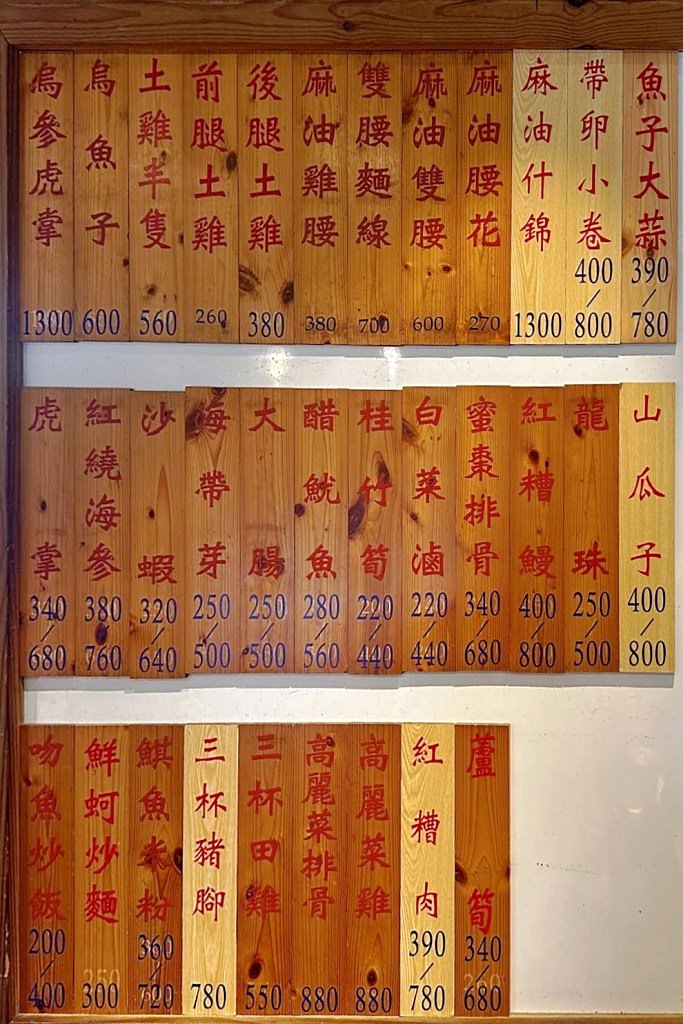 烏參虎掌
1300
烏魚子
600
土雞半隻
560
前腿土雞
260
後腿土雞
380
麻油雞腰
380
雙腰麵線
700
麻油雙腰
600
麻油腰花
270
麻油什錦
1300
帶卵小卷
400/800
魚子大蒜
390/780
虎掌
340/680
紅繞海參
380/760
沙蝦
320/640
海帶芽
250/500
大腸
250/500
醋魷魚
280/560
桂竹筍
220/440
白菜滷
220/440
蜜棗排骨
340/680
紅糟鰻
400/800
龍珠
250/500
山瓜子
400/800
吻魚炒飯
200/400
鮮蚵炒麵
300
鯕魚米粉
360/720
三杯豬腳
780
三杯田雞
550
高麗菜排骨
880
高麗菜雞
880
紅糟肉
390/780
蘆筍
340/680